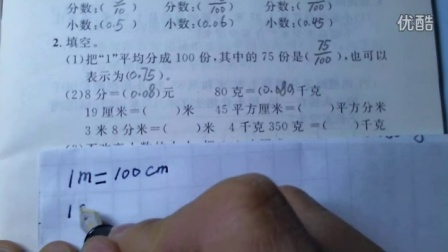 优酷
分数：(  /10)  分数：(  /100)  分数：(  /100)
小数：(0.5)  小数：(0.06)  小数：(0.45)
2. 填空。
(1)把“1”平均分成100份，其中的75份是(75/100)，也可以
表示为(0.75)。
(2)8分＝(0.08)元  80克＝(0.080)千克
19厘米＝( )米  45平方厘米＝( )平方分米
3米8分米＝( )米  4千克350克＝( )千克
1m=100cm
1